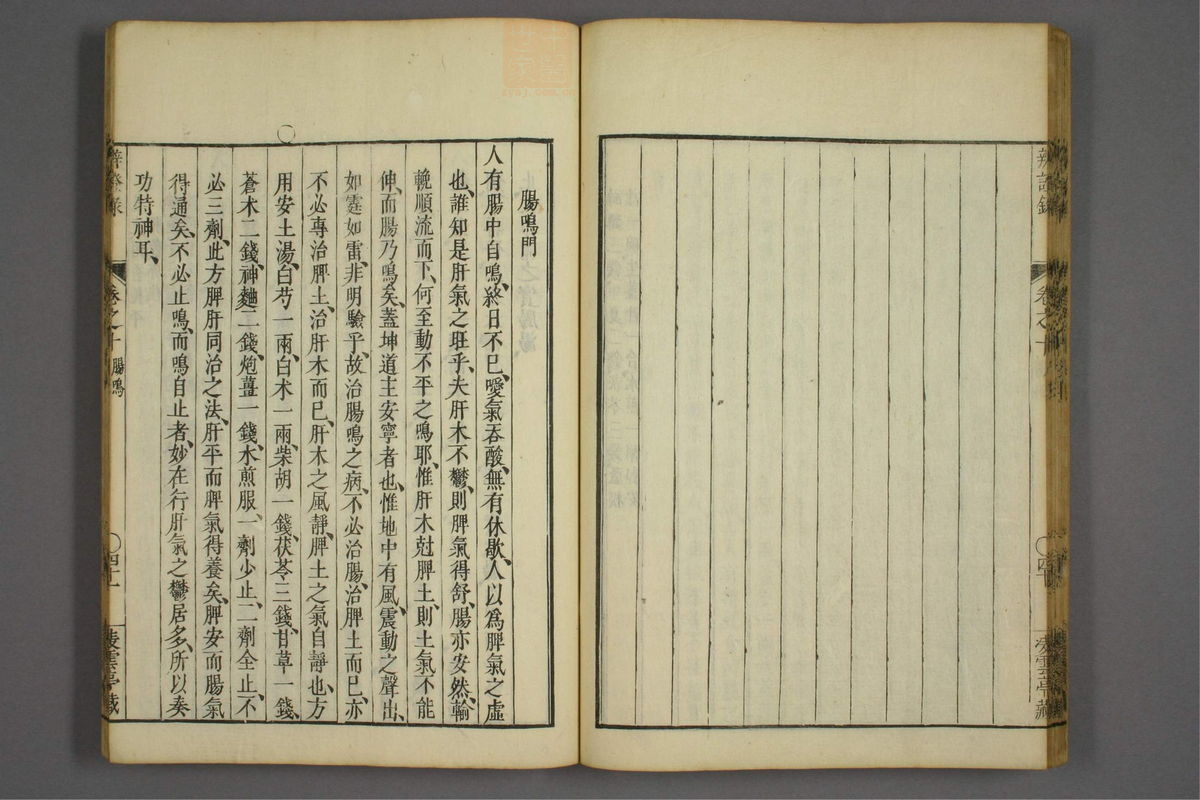 辨證錄
卷之十
凌雲亭藏
腸鳴門
人有腸中自鳴、終日不已、噯氣吞酸、無有休歇、人以爲脾氣之虛
也、誰知是肝氣之旺乎、夫肝木不鬱、則脾氣得舒、腸亦安然、輸
輓順流而下、何至動不平之鳴耶、惟肝木尅脾土、則土氣不能
伸、而腸乃鳴矣、蓋坤道主安寧者也、惟地中有風、震動之聲出、
如霆如雷、非明驗乎、故治腸鳴之病、不必治腸、治脾土而已、亦
不必專治脾土、治肝木而已、肝木之風靜、脾土之氣自靜也、方
用安土湯、白芍一兩、白术一兩、柴胡一錢、茯苓三錢、甘草一錢、
蒼术二錢、神麯二錢、炮薑一錢、水煎服、一劑少止、二劑全止、不
必三劑、此方脾肝同治之法、肝平而脾氣得養矣、脾安而腸氣
得通矣、不必止鳴、而鳴自止者、妙在行肝氣之鬱居多、所以奏
功特神耳、
辨證錄
卷之十 腸鳴
○四十一
凌雲亭藏